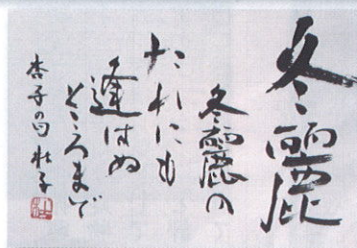 冬麗
冬麗の
たれにも
逢はぬ
ところまで
杏子の句 杜子